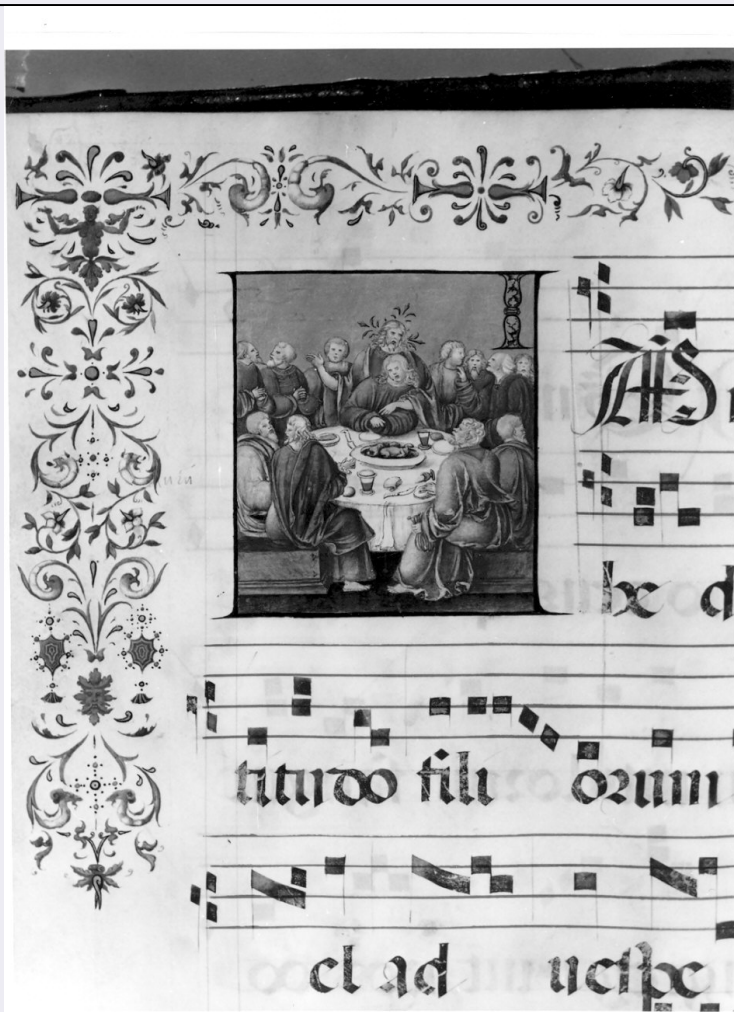 I M
he d
titudo fili orum
el ad uespe